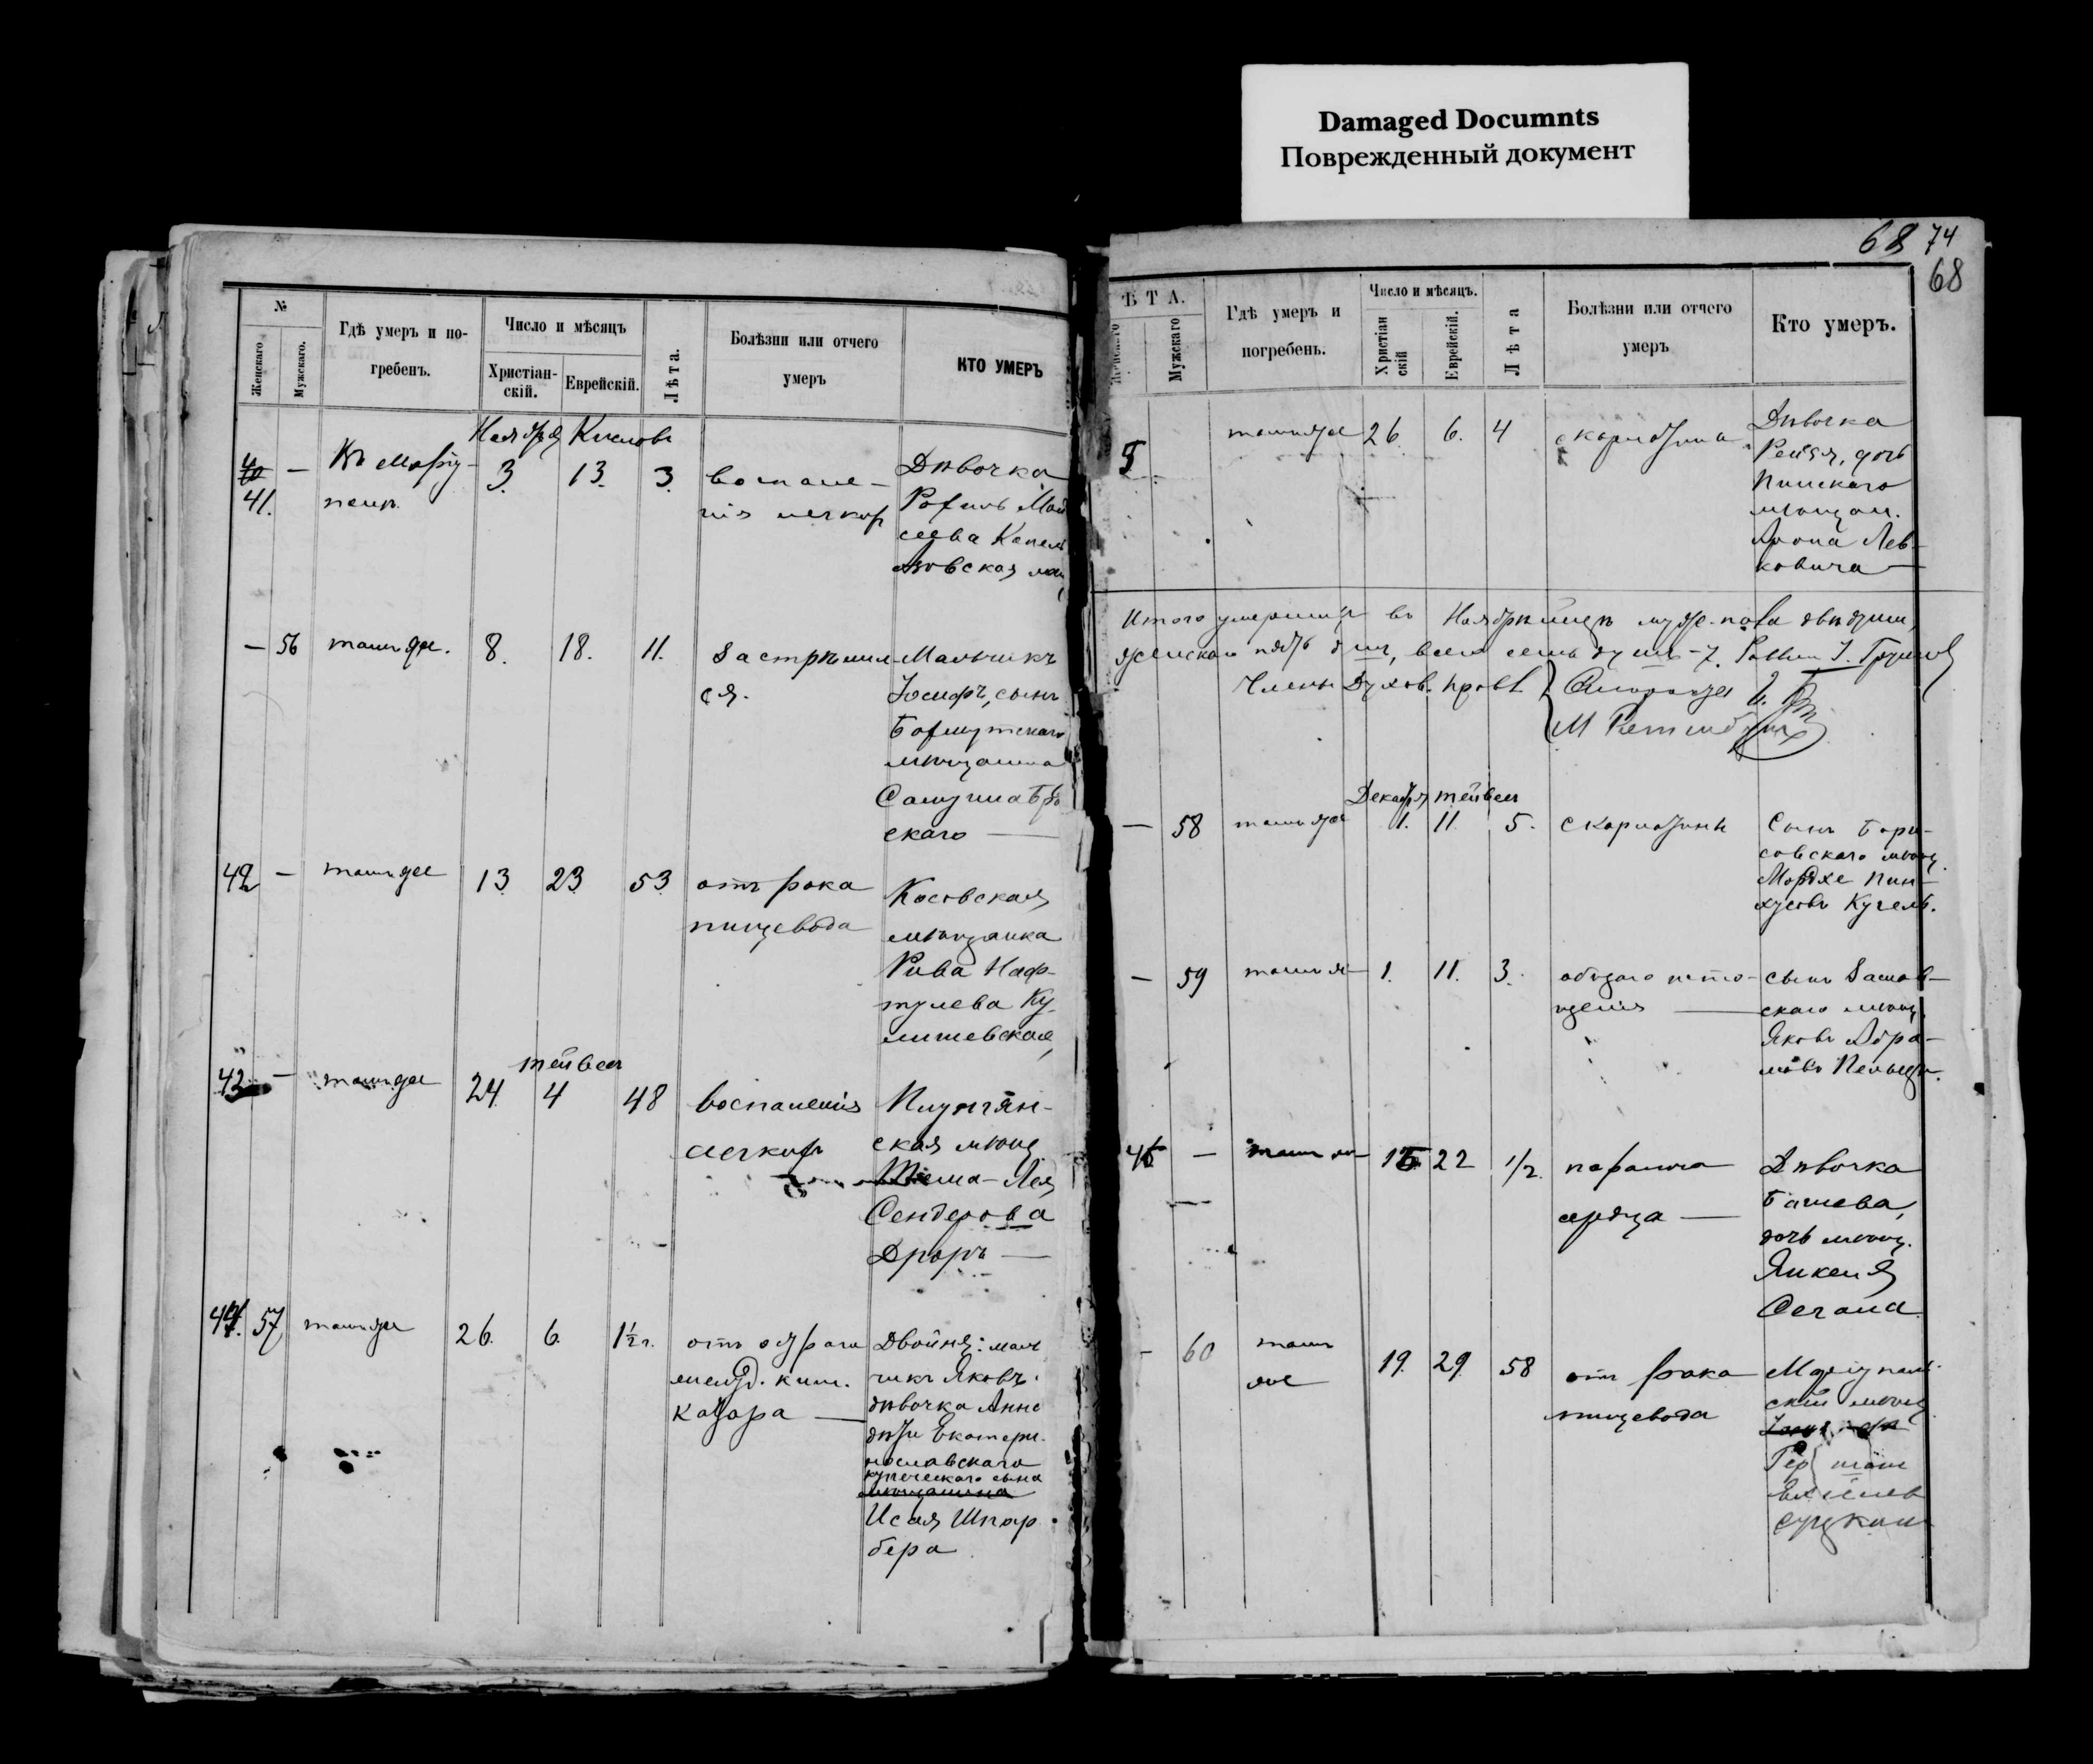 Damaged Documnts
Поврежденный документ
№
Женскаго
Мужскаго.
Гдѣ умеръ и по-
гребенъ.
Число и мѣсяцъ
Христіан-
скій.
Еврейскій.
Лѣта.
Болѣзни или отчего
умеръ
КТО УМЕРЪ
Ноября Кислевъ
41.
—
Въ Маріу-
полѣ
3
13.
3
воспале-
нія легкихъ
Дѣвочка
Рохиль Мои
сеева Копель
ская
—
56
тамъ же.
8.
18.
11.
Застрѣлил
ся.
Мальчикъ
Іосифъ, сынъ
Бахмутскаго
мѣщанина
скаго —
42
—
тамъ же
13
23
53
отъ рака
пищевода
Косовская
мѣщанка
Рива Наф-
тулева Ку-
лишевская
тейвесъ
43
—
тамъ же
24
4
48
воспаленія
легкихъ
Плунгян-
ская мѣщ.
Лея
Сендерова
Дроръ —
44.
57
тамъ же
26.
6.
1½ г.
отъ остраго
желуд. киш.
катара —
Двойня: маль
чикъ Яковъ.
дѣвочка Анна
дѣти Екатери-
нославскаго
купеческаго сына
мѣщанина
Исая Шпар
бера
68 74
68
ѢТА.
Женскаго
Мужскаго
Гдѣ умеръ и
погребенъ.
Число и мѣсяцъ.
Христіан
скій
Еврейскій.
Лѣта
Болѣзни или отчего
умеръ
Кто умеръ.
5
тамъ же
26.
6.
4
скарлатина
Дѣвочка
Рейзя, дочь
Пинскаго
мѣщан.
Арона Лев-
ковича —
Итого умершихъ въ Ноябрѣ мѣсяцѣ муж. пола двѣ души,
женскаго пять душъ, всего семь душъ - 7.
Члены Духов. Правл.
Декабря тейвесъ
—
58
тамъ же
1.
11
5.
скарлатины
Сынъ Бори-
совскаго мѣщ.
Мордхе Пин-
хусовъ Кугель.
—
59
тамъ же
1.
11.
3.
общаго исто-
щенія —
сынъ Заслав-
скаго мѣщ.
Яковъ Абра-
мовъ
45
—
тамъ же
22
1/2
паралича
сердца —
Дѣвочка
Башева,
дочь мѣщ.
Янкеля
Сегала
-
60
тамъ
же
19.
29.
58
отъ рака
пищевода
Маріуполь-
скій мѣщ.